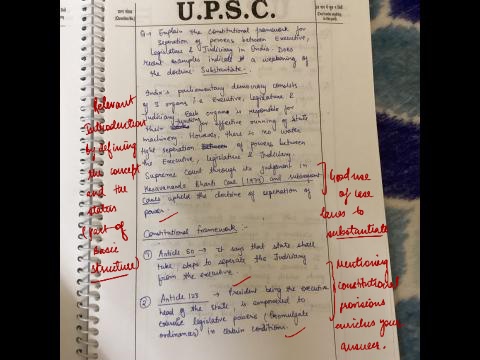 U.P.S.C.
Q.1 Explain the constitutional framework for
separation of powers between Executive,
Legislature & Judiciary in India. Does
recent examples indicate a weakening of
the doctrine. Substantiate.
India's parliamentary democracy consists
of 3 organs i.e Executive, Legislature &
Judiciary. Each organ is responsible for
their for effective running of state
machinery. However, there is no water
tight separation of powers between
the Executive, Legislature & Judiciary.
Supreme Court through its judgement in
Kesavananda Bharti Case (1973) and subsequent
cases upheld the doctrine of separation of
power.
Constitutional framework :-
1) Article 50 → It says that state shall
take steps to seperate the Judiciary
from the executive.
2) Article 123 → President being the executive
head of the state is empowered to
exercise legislative powers (Promulgate
ordinances) in certain conditions.
Relevant
Introduction
by defining
the concept
and the
status
(part of
basic
structure)
Good use
of case
laws to
substantiate
Mentioning
constitutional
provisions
enriches your
answer.